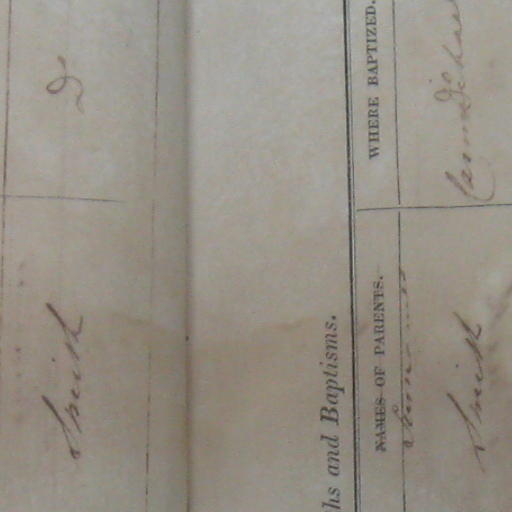 Smith Do
ths and Baptisms.
NAMES OF PARENTS. WHERE BAPTIZED.
Surnames
Smith Carmichael